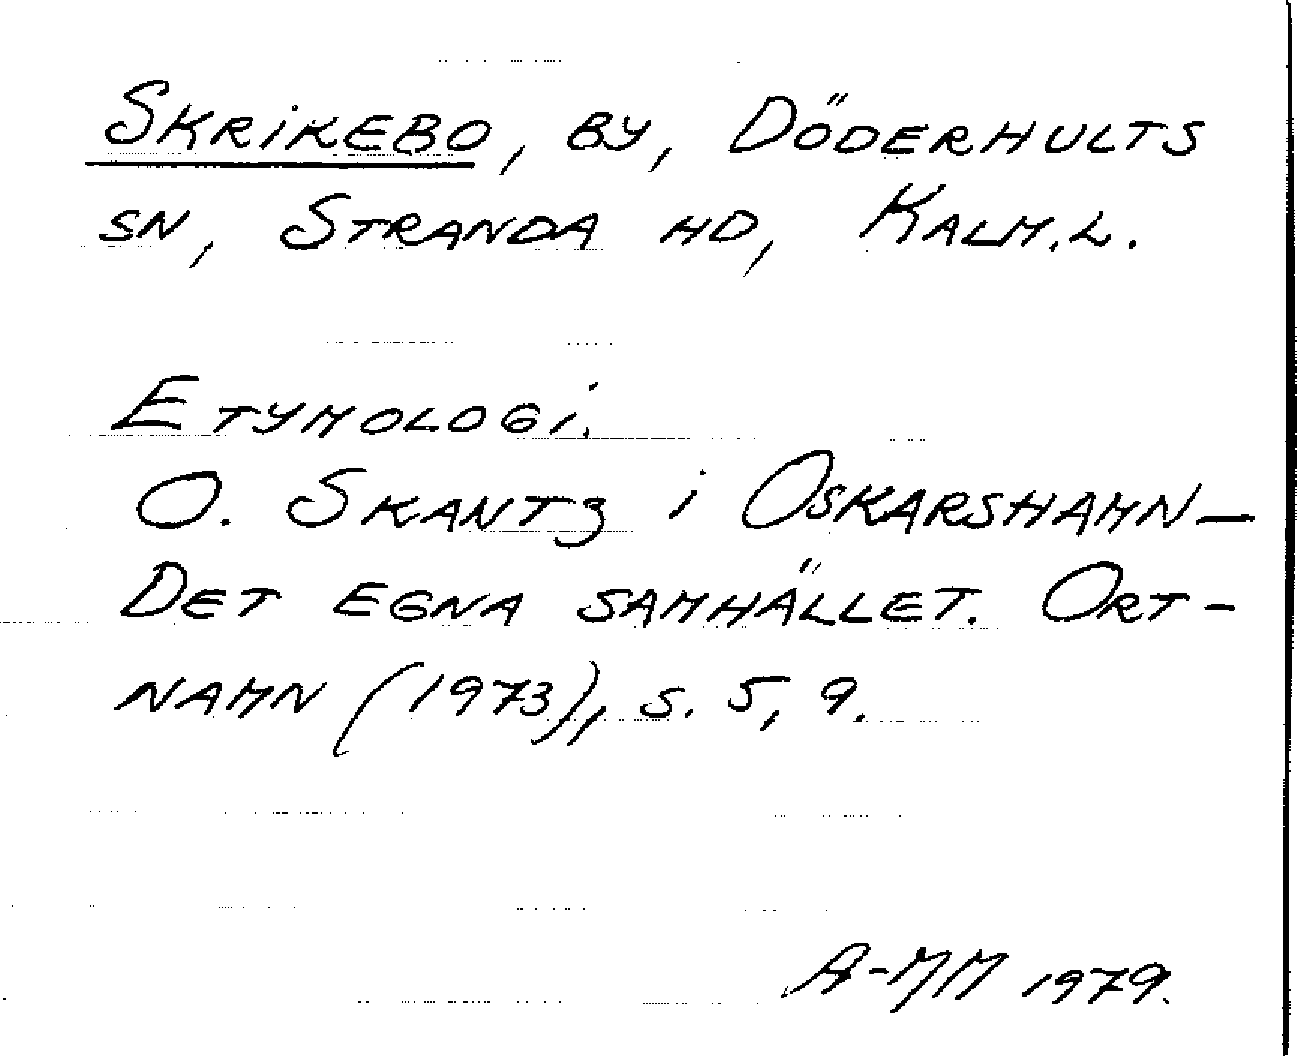 Skrikebo, by, Döderhults
sn, Stranda hd, Kalm.l.
Etymologi.
O. Skantz i Oskarshamn–
Det egna samhället. Ort-
namn (1973), s. 5, 9.
A-MM 1979.